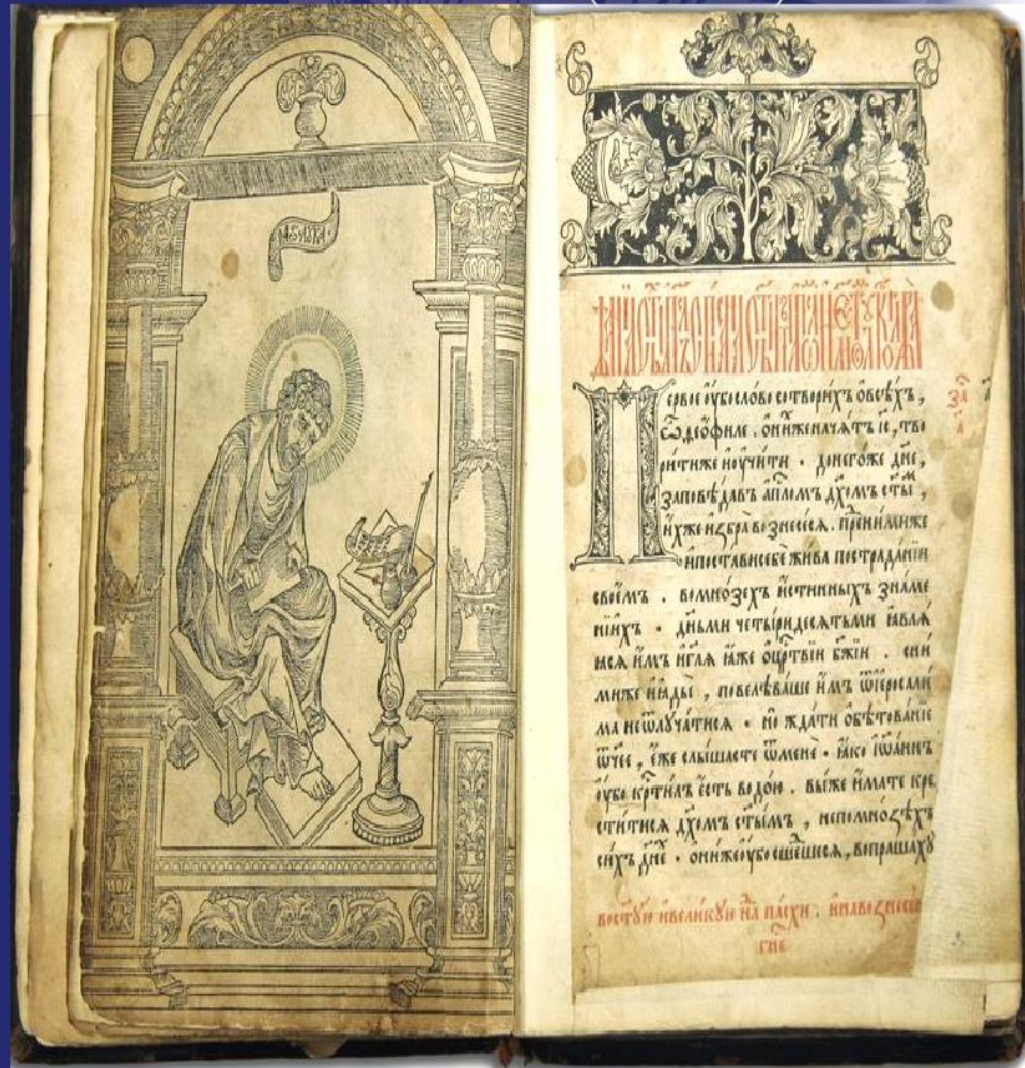 Първое ᲂу҆бо слово сотворихъ ѻ҆всѣхъ,
ѽ ѳео́филе. ѻ҆ нихже нача́тъ і҃с, тво
ри́тиже и҆ оучи́ти. до негоже дн҃е,
заповѣ́давъ а҆пⷭ҇ломъ дх҃омъ ст҃ы́ⷨ,
и҆́хже и҆збра̀ вознесе́сѧ. пре́ⷣ ни́миже
и҆ поставѝ себѐ жи́ва по страда́нїи
свое́мъ. во мно́зехъ и҆́стинныхъ зна́ме
нїихъ. дн҃ьми четы́ридесѧтьми ꙗ҆влѧ́
ꙗсѧ и҆̀мъ и҆ гл҃ѧ ꙗ҆́же ѻ҆ црⷭ҇твїи бж҃їи. сни́
миже и҆ ꙗды̀, повелѣва́ше и҆̀мъ ѿ і҆еросали́
ма не ѿлуча́тисѧ. но жда́ти ѻ҆бѣтова́нїе
ѿч҃ее, е҆́же слы́шасте ѿ менѐ. ꙗ҆́ко і҆ѡа́ннъ
оу҆́бо крⷭ҇ти́лъ є҆́сть водо́ю. вы́же и҆́мате кре
сти́тисѧ дх҃омъ ст҃ы́мъ, не по мно́ѕѣхъ
си́хъ дн҃е. ѻ҆ни́же оу҆́бо сше́дшесѧ, вопраша́хꙋ
во ст҃ꙋ́ю и҆ вели́кꙋю нⷣ҇лѧ па́схи. и҆ на вознесе́нїе
гн҃е